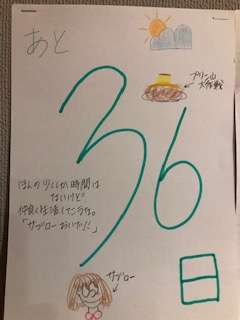 あと
プリン山
大作戦
36
ほんの少ししか時間は
ないけど
仲良く生活してこうな。
「サブロー おいたりに」
日
サブロー